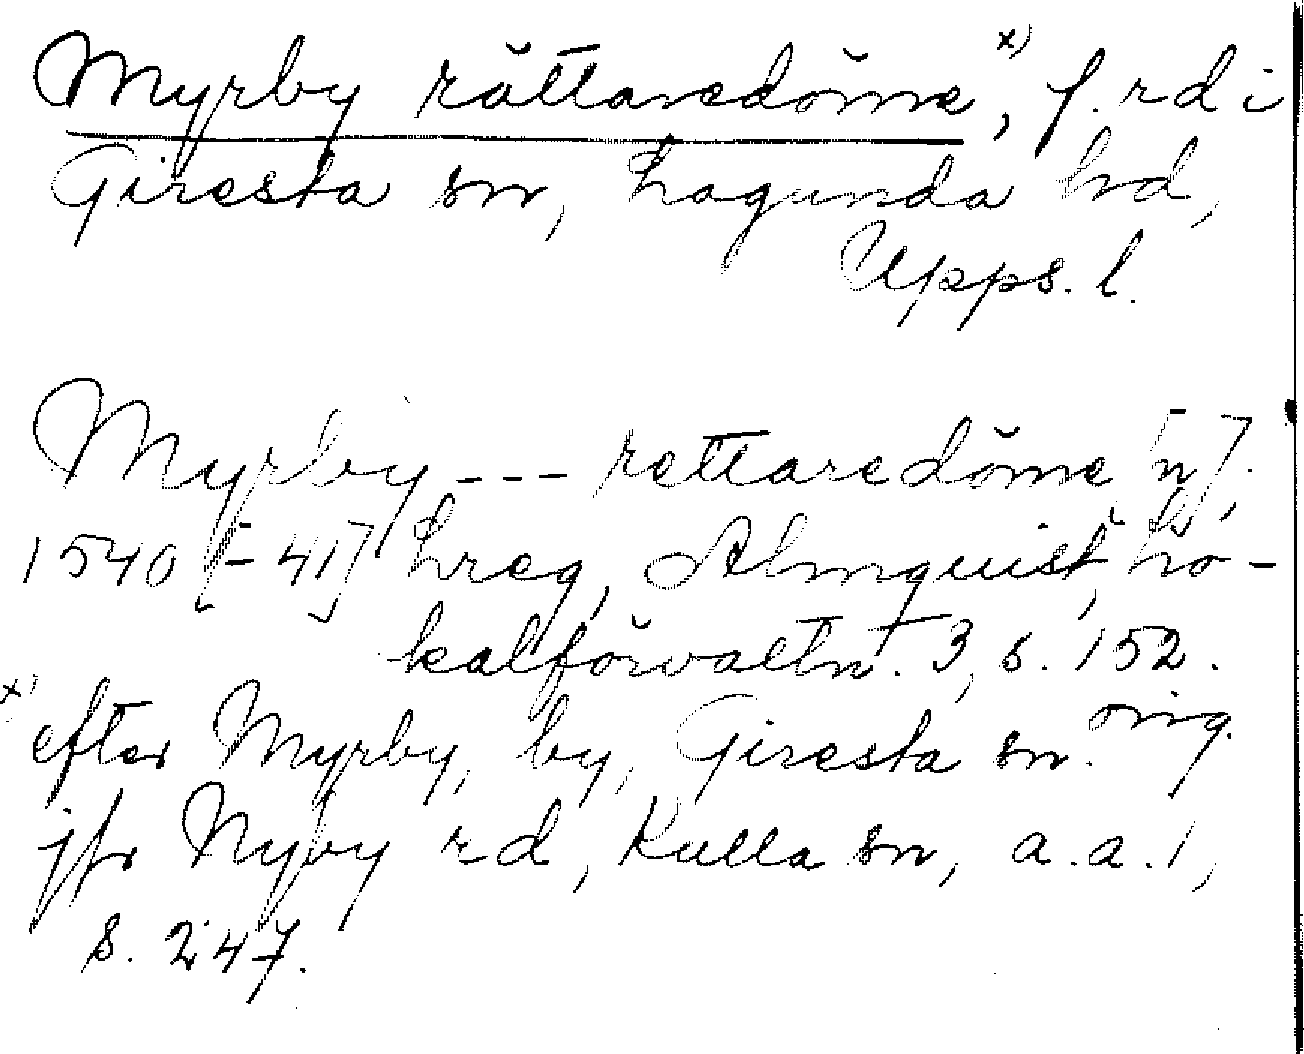 Myrby rättaredöme,ˣ⁾ f. rd i
Giresta sn, Lagunda hd,
Upps. l.
Myrby --- rettaredöme [n].
1540 [-41] Lreg, Almquist, Lo-
kalförvaltn. 3, s. 152.
ˣ⁾ efter Myrby, by, Giresta sn. omg.
jfr Nyby rd, Kulla sn, a.a. 1,
s. 247.